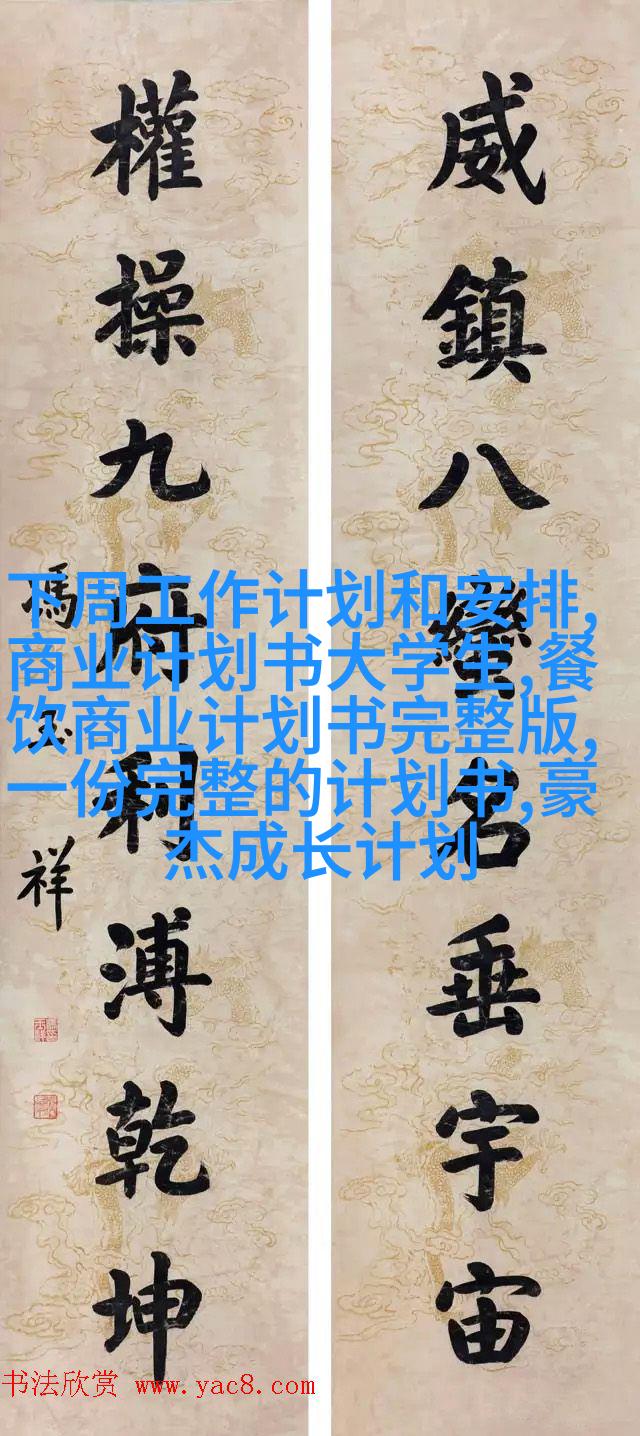 威鎮八蠻名垂宇宙
權操九府利溥乾坤
馮玉祥
下周工作计划和安排,
商业计划书大学生,餐
饮商业计划书完整版,
一份完整的计划书,豪
杰成长计划
书法欣赏 www.yac8.com